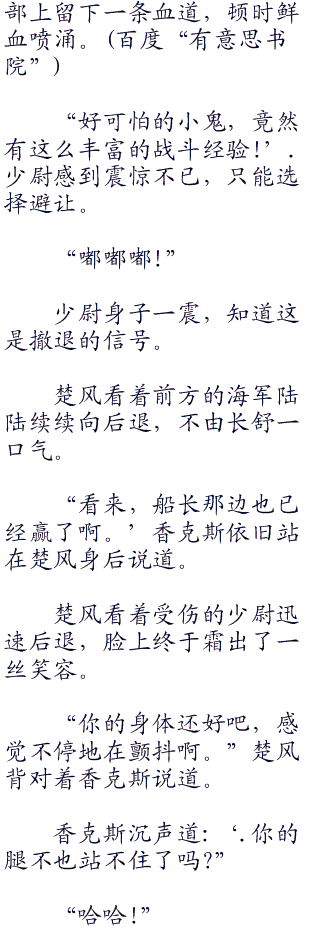 部上留下一条血道，顿时鲜
血喷涌。(百度“有意思书
院”)
“好可怕的小鬼，竟然
有这么丰富的战斗经验!’.
少尉感到震惊不已，只能选
择避让。
“嘟嘟嘟!”
少尉身子一震，知道这
是撤退的信号。
楚风看着前方的海军陆
陆续续向后退，不由长舒一
口气。
“看来，船长那边也已
经赢了啊。’香克斯依旧站
在楚风身后说道。
楚风看着受伤的少尉迅
速后退，脸上终于霜出了一
丝笑容。
“你的身体还好吧，感
觉不停地在颤抖啊。”楚风
背对着香克斯说道。
香克斯沉声道:‘.你的
腿不也站不住了吗?”
“哈哈!”